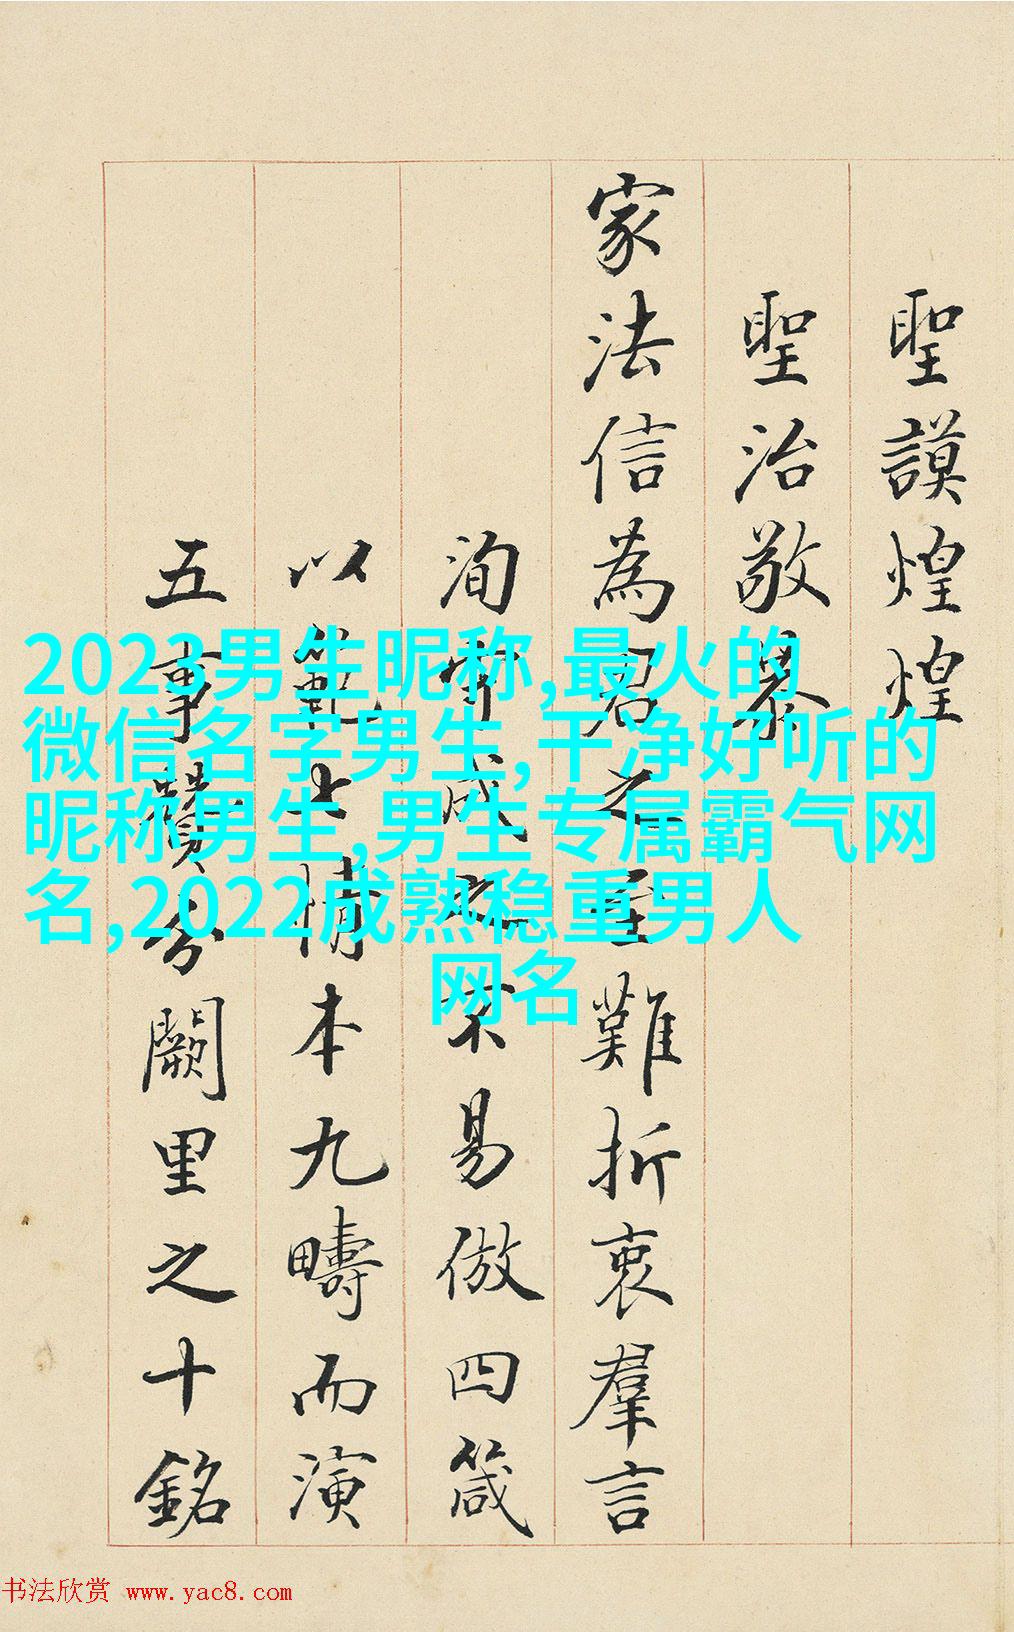 聖謨煌煌
聖治敬畧
家法信為君之至難折衷羣言
洵宜成不易倣四箴
以範七情本九疇而演
五事贊分闕里之十銘
2023男生昵称,最火的
微信名字男生,干净好听的
昵称男生,男生专属霸气网
名,2022成熟稳重男人
网名
书法欣赏 www.yac8.com